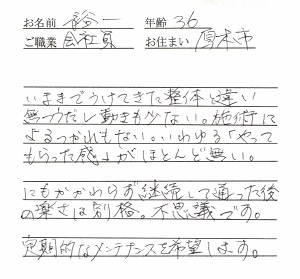 お名前 裕一 年齢 36
ご職業 会社員 お住まい 厚木市
いままでうけてきた整体と違い
無つうだし動きも少ない。施術に
よるつかれもない。いわゆる「やって
もらった感」がほとんど無い。
にもかかわらず継続して通った後
の楽さは別格。不思議です。
定期的なメンテナンスを希望します。